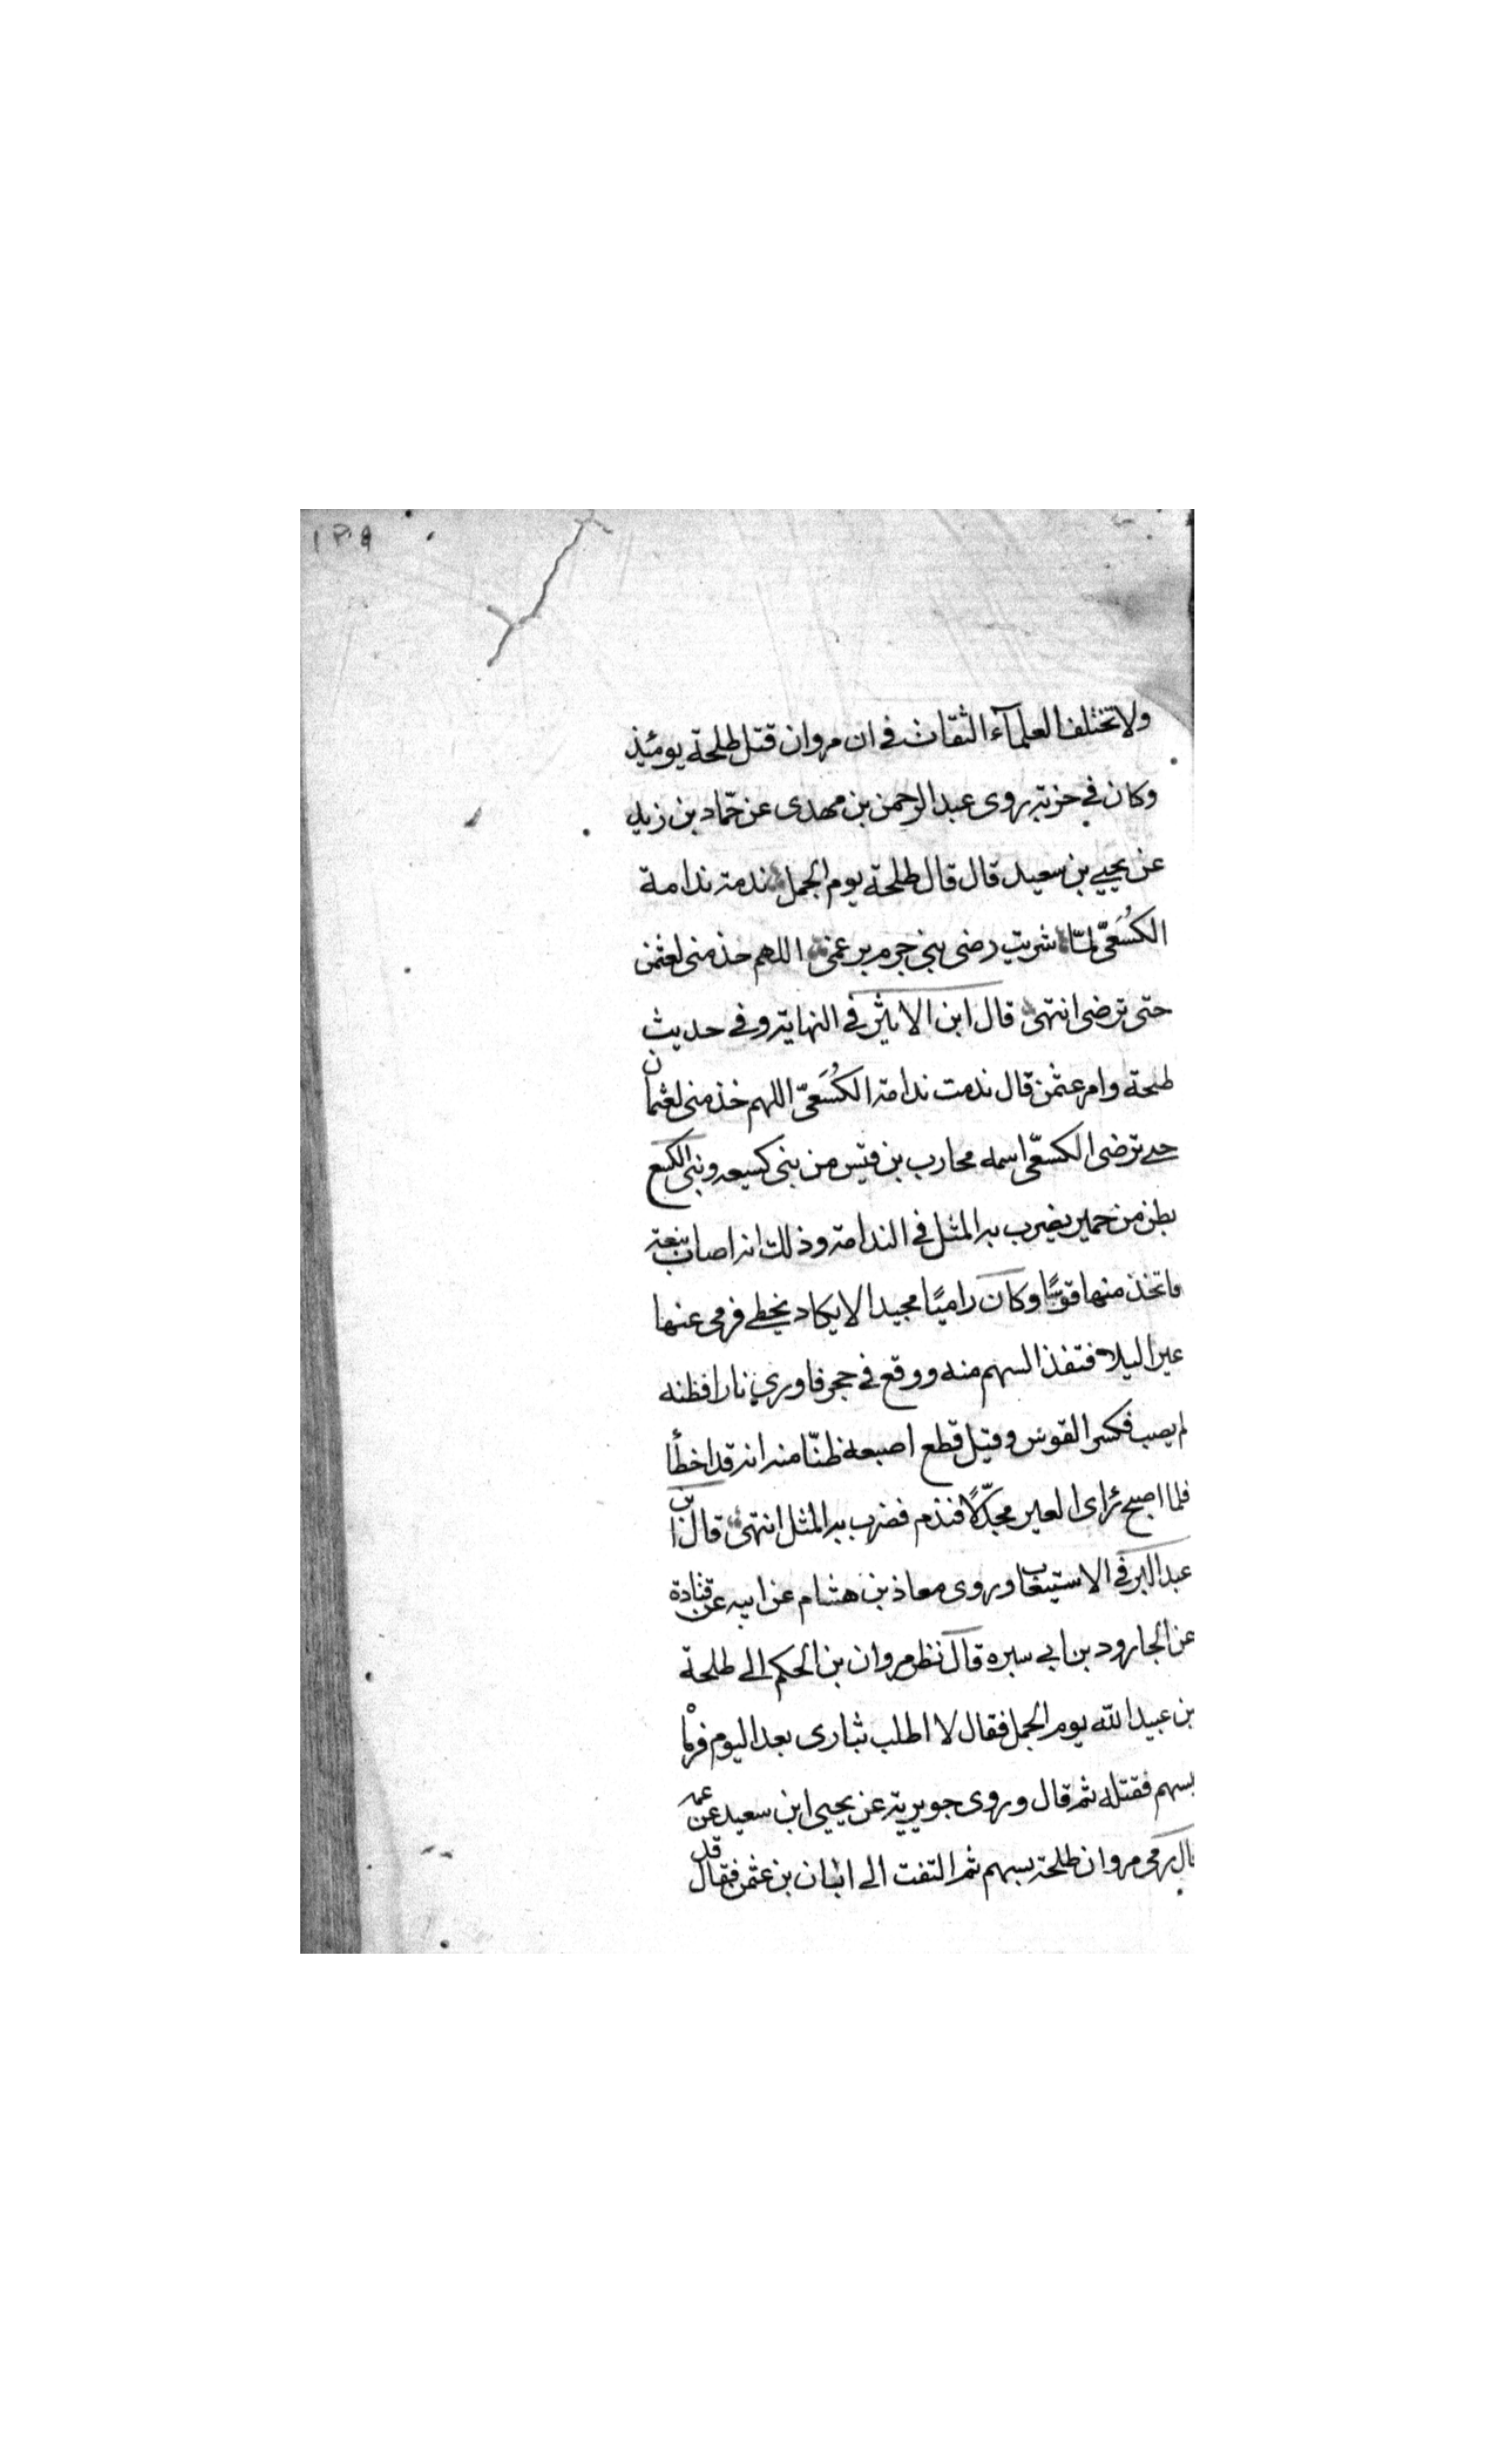 ١٣٩
ولا تختلف العلمآء الثقات في ان مروان قتل طلحة يومئذ
وكان في حزبه روى عبد الرحمن بن مهدى عن حمّاد بن زيد
عن يحيى بن سعيد قال قال طلحة يوم الجمل ندمت ندامة
الكُسَعيّ لمّا شريت رضى بني جرم برغمى اللهم خذ منى لعثمن
حتى ترضى انتهى قال ابن الاثير في النهايه وفي حديث
طلحة وامر عثمن قال ندمت ندامة الكُسَعيّ اللهم خذ منى لعثمان
حتى ترضى الكسعّى اسمه محارب بن قيس من بنى كسيعه وبنى الكسع
بطن من حمير يضرب به المثل في الندامه وذلك انه اصاب نبعة
فاتخذ منها قوسًا وكان راميًا مجيدا لا يكاد يخطي فرمى عنها
عيرا ليلا فنفذ السهم منه ووقع في حجر فاورى نارا فظنه
لم يصب فكسر القوس وقيل قطع اصبعه ظنّا منه انه قد اخطأ
فلما اصبح رأى العير مجدّلًا فندم فضرب به المثل انتهى قال ابن
عبد البر في الاستيعاب وروى معاذ بن هشام عن ابيه عن قتادة
عن الجارود بن ابي سبره قال نظر مروان بن الحكم الى طلحة
بن عبيد الله يوم الجمل فقال لا اطلب بثارى بعد اليوم فرماه
بسهم فقتله ثم قال وروى جويرية عن يحيى ابن سعيد عن عمه
قال رمى مروان طلحة بسهم ثم التفت الى ابان بن عثمن فقال قد